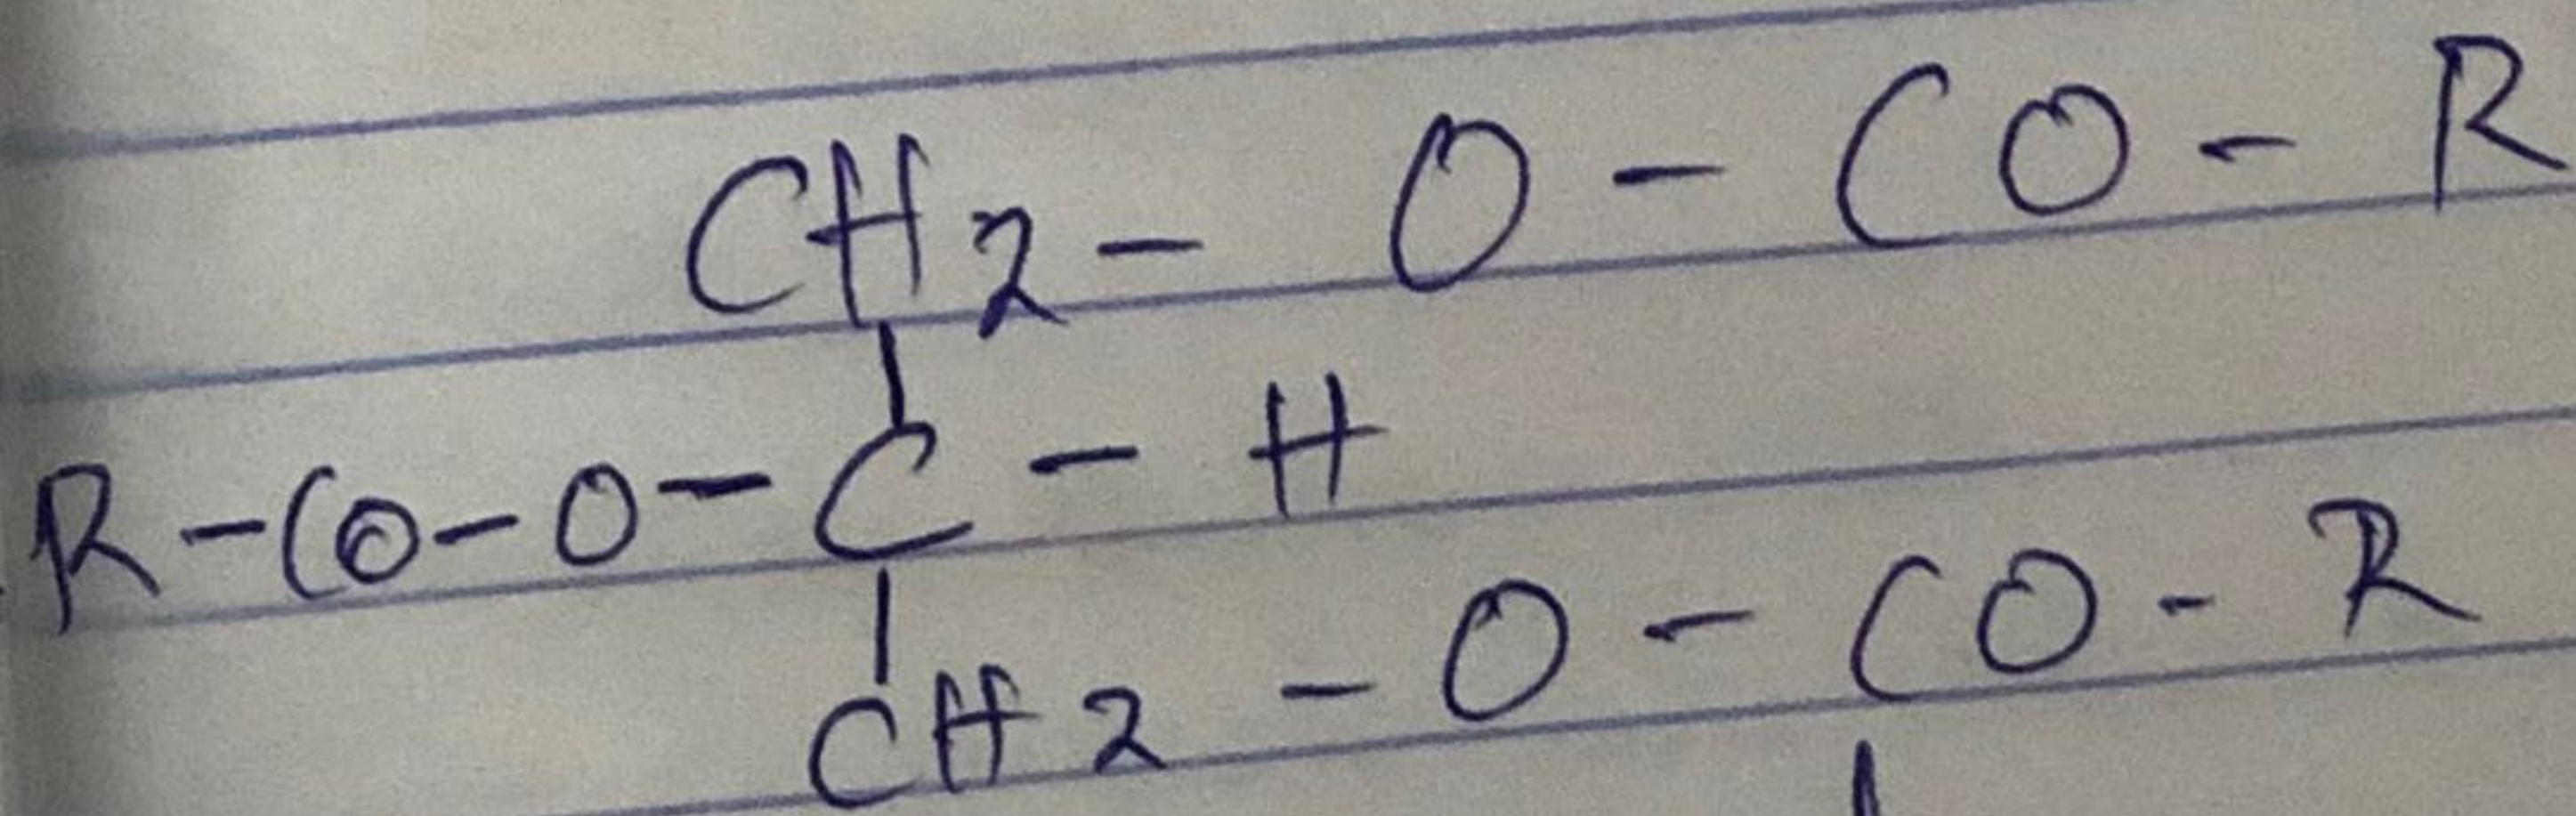 CH2 - O - CO - R
|
R - CO - O - C - H
|
CH2 - O - CO - R